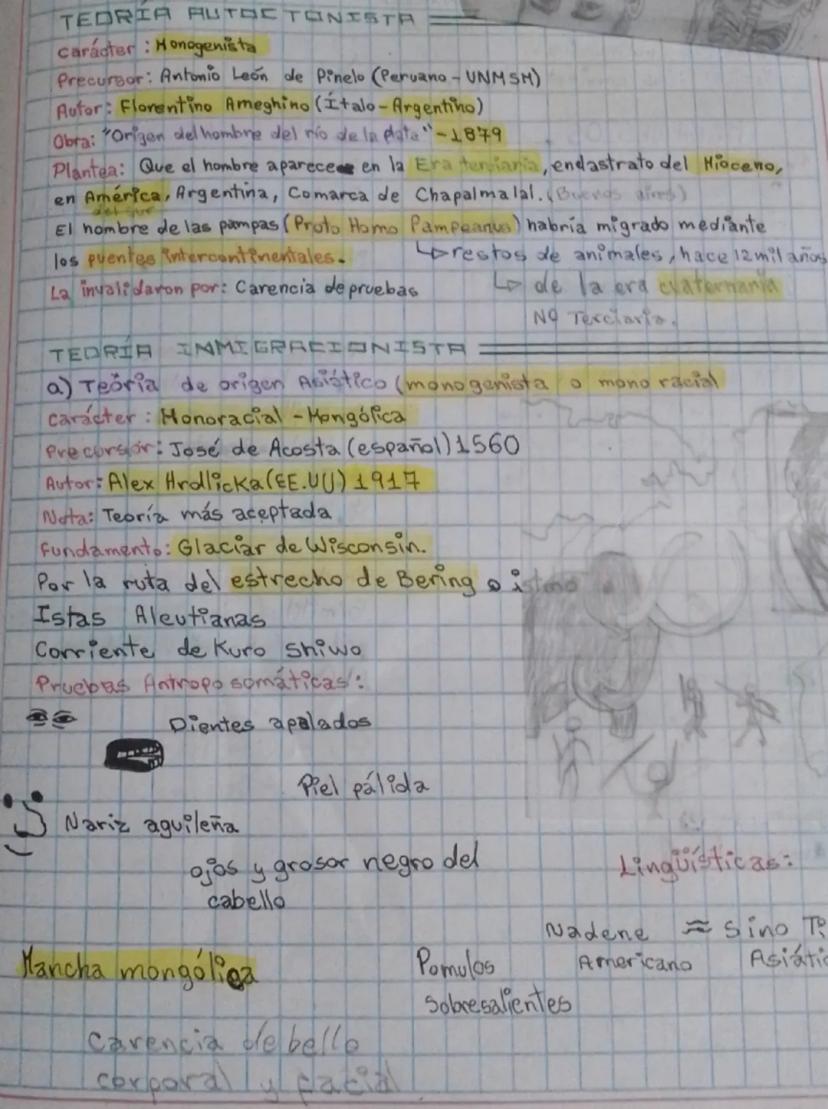 TEORÍA AUTOCTONISTA
carácter : Monogenista
Precursor: Antonio León de Pinelo (Peruano - UNMSM)
Autor: Florentino Ameghino (Ítalo-Argentino)
Obra: "Origen del hombre del río de la plata" - 1879
Plantea: Que el hombre aparece en la Era terciaria, en el estrato del Mioceno,
en América, Argentina, Comarca de Chapalmalal. (Buenos aires)
El hombre de las pampas (Proto Homo Pampeanus) habría migrado mediante
los puentes intercontinentales. ↳ restos de animales, hace 12 mil años
La invalidaron por: Carencia de pruebas ↳ de la era cuaternaria
NO Terciaria.
TEORÍA INMIGRACIONISTA
a) Teoría de origen Asiático (monogenista o mono racial
carácter : Monoracial - Mongólica
Precursor: José de Acosta (español) 1560
Autor: Alex Hrdlicka (EE.UU) 1917
Nota: Teoría más aceptada
Fundamento: Glaciar de Wisconsin.
Por la ruta del estrecho de Bering o istmo
Istas Aleutianas
Corriente de Kuro Shiwo
Pruebas Antroposomáticas:
Dientes apalados
Piel pálida
Nariz aguileña
ojos y grosor negro del
cabello
Lingüísticas:
Nadene ≈ Sino
Americano
Mancha mongólica
Pomulos
sobresalientes
carencia de bello
corporal y facial